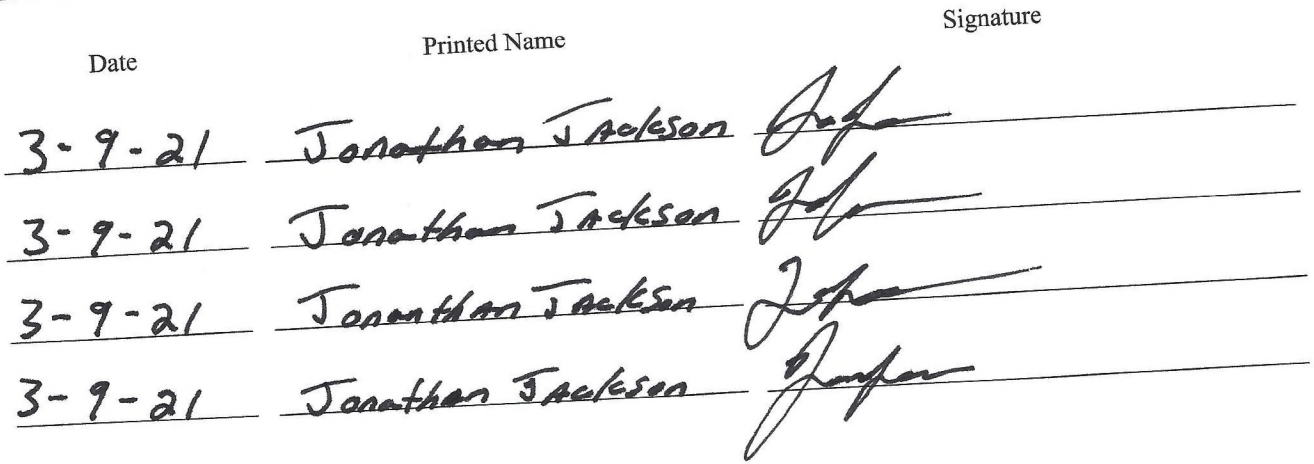 Date Printed Name Signature
3-9-21 Jonathan JAckson
3-9-21 Jonathan JAckson
3-9-21 Jonanthan JAckson
3-9-21 Jonathan JAckson